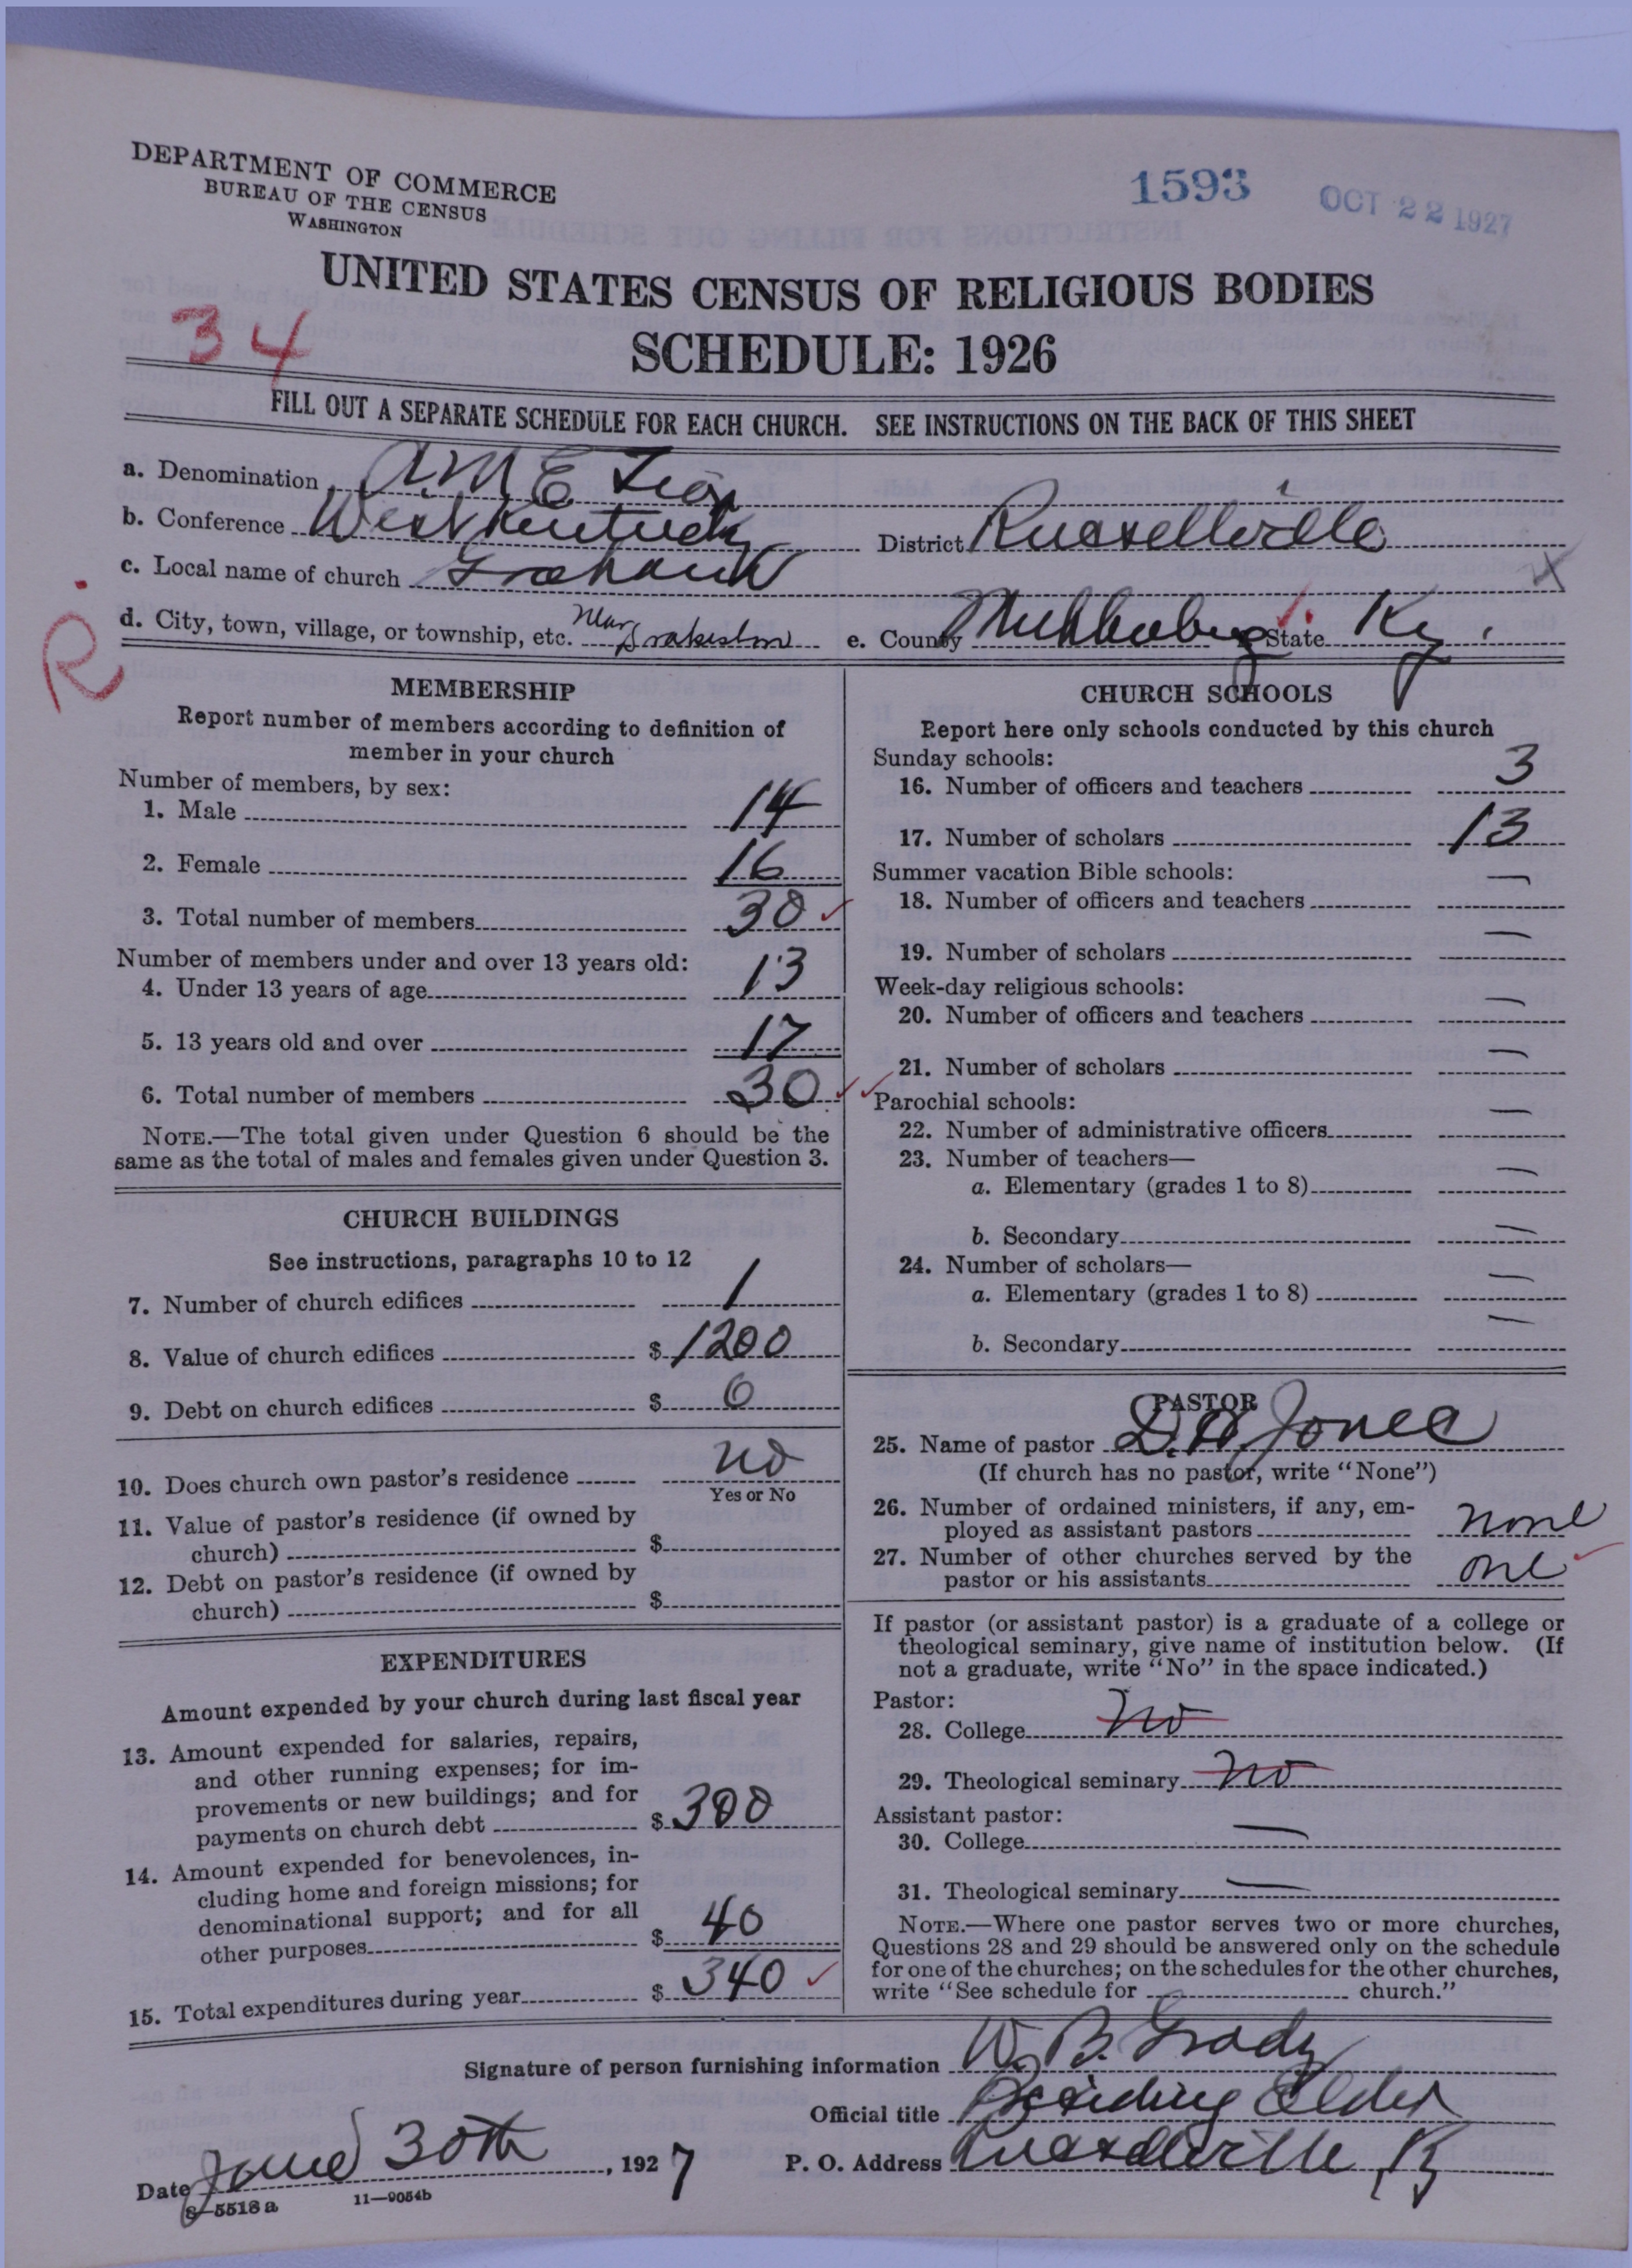 DEPARTMENT OF COMMERCE
BUREAU OF THE CENSUS
WASHINGTON
1593
OCT 22 1927
UNITED STATES CENSUS OF RELIGIOUS BODIES
34
SCHEDULE: 1926
FILL OUT A SEPARATE SCHEDULE FOR EACH CHURCH. SEE INSTRUCTIONS ON THE BACK OF THIS SHEET
a. Denomination A.M.E Zion
b. Conference West Kentucky District Russellville
c. Local name of church X
d. City, town, village, or township, etc. Near e. County State Ky.
R
MEMBERSHIP
Report number of members according to definition of
member in your church
Number of members, by sex:
1. Male 14
2. Female 16
3. Total number of members 30
Number of members under and over 13 years old:
4. Under 13 years of age 13
5. 13 years old and over 17
6. Total number of members 30
NOTE.—The total given under Question 6 should be the
same as the total of males and females given under Question 3.
CHURCH BUILDINGS
See instructions, paragraphs 10 to 12
7. Number of church edifices 1
8. Value of church edifices $ 1200
9. Debt on church edifices $ 0
10. Does church own pastor's residence no
Yes or No
11. Value of pastor's residence (if owned by
church) $
12. Debt on pastor's residence (if owned by
church) $
EXPENDITURES
Amount expended by your church during last fiscal year
13. Amount expended for salaries, repairs,
and other running expenses; for im-
provements or new buildings; and for
payments on church debt $ 300
14. Amount expended for benevolences, in-
cluding home and foreign missions; for
denominational support; and for all
other purposes $ 40
15. Total expenditures during year $ 340
CHURCH SCHOOLS
Report here only schools conducted by this church
Sunday schools:
16. Number of officers and teachers 3
17. Number of scholars 13
Summer vacation Bible schools:
18. Number of officers and teachers —
19. Number of scholars —
Week-day religious schools:
20. Number of officers and teachers —
21. Number of scholars —
Parochial schools:
22. Number of administrative officers —
23. Number of teachers—
a. Elementary (grades 1 to 8) —
b. Secondary —
24. Number of scholars—
a. Elementary (grades 1 to 8) —
b. Secondary —
PASTOR
25. Name of pastor Jones
(If church has no pastor, write "None")
26. Number of ordained ministers, if any, em-
ployed as assistant pastors none
27. Number of other churches served by the
pastor or his assistants one
If pastor (or assistant pastor) is a graduate of a college or
theological seminary, give name of institution below. (If
not a graduate, write "No" in the space indicated.)
Pastor:
28. College No
29. Theological seminary no
Assistant pastor:
30. College —
31. Theological seminary —
NOTE.—Where one pastor serves two or more churches,
Questions 28 and 29 should be answered only on the schedule
for one of the churches; on the schedules for the other churches,
write "See schedule for church."
Signature of person furnishing information W. B. Grady
Official title Presiding Elder
Date June 30th, 1927 P. O. Address Russellville Ky
8—5518 a 11—9054b